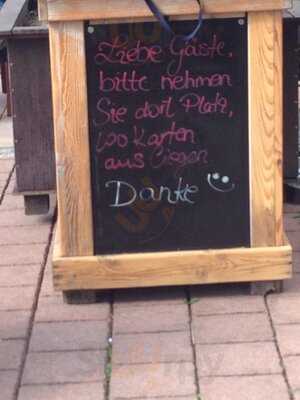 Liebe Gäste,
bitte nehmen
Sie dort Platz,
wo Karten
aus liegen
Danke